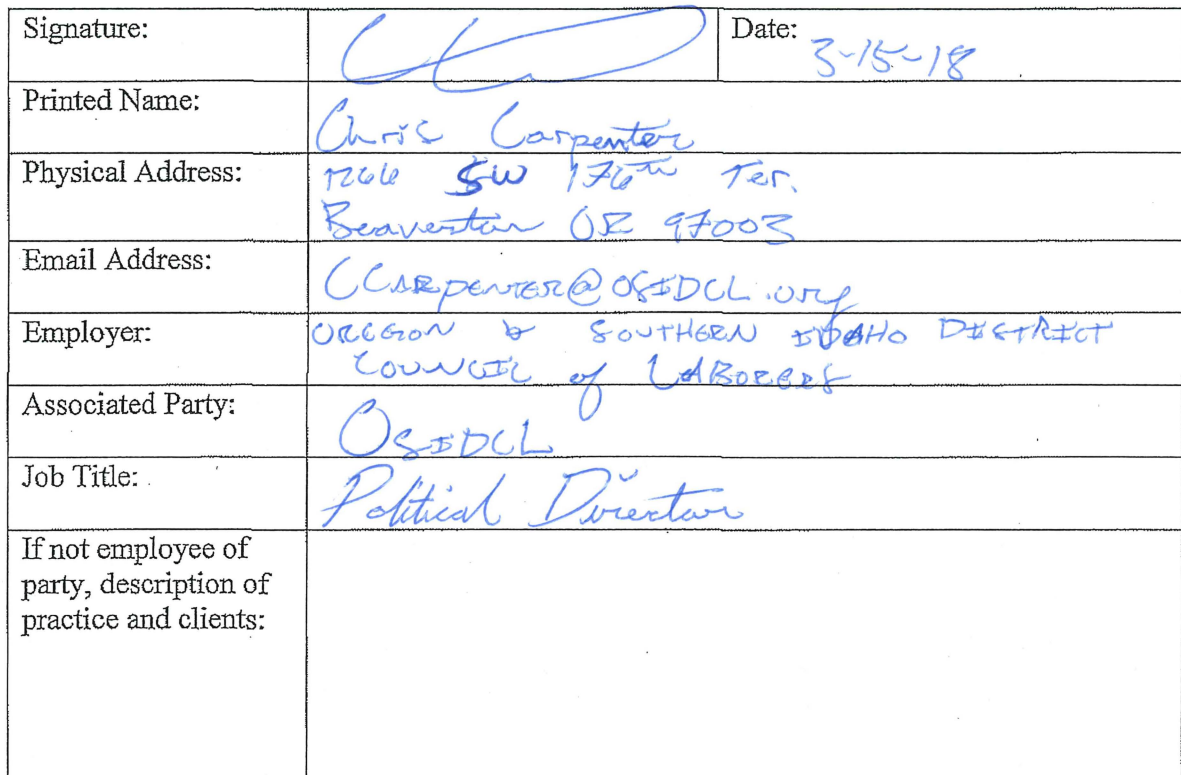 Signature:
Date: 3-15-18
Printed Name: Chris Carpenter
Physical Address: 1266 SW 176th Ter.
Beaverton OR 97003
Email Address: CCARPENTER@OSIDCL.org
Employer: OREGON & SOUTHERN IDAHO DISTRICT
COUNCIL of LABORERS
Associated Party: OSIDCL
Job Title: Political Director
If not employee of
party, description of
practice and clients: